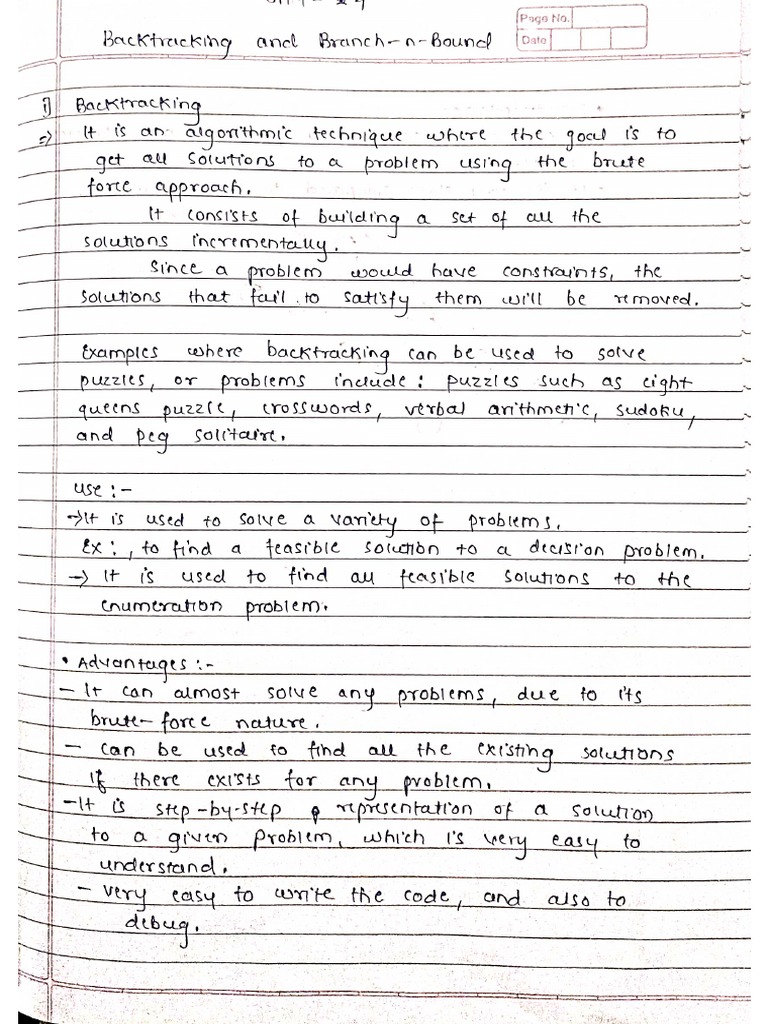 Backtracking and Branch-n-Bound
Page No.
Date
i] Backtracking
=> It is an algorithmic technique where the goal is to
get all solutions to a problem using the brute
force approach.
It consists of building a set of all the
solutions incrementally.
Since a problem would have constraints, the
solutions that fail to satisfy them will be removed.
Examples where backtracking can be used to solve
puzzles, or problems include: puzzles such as eight
queens puzzle, crosswords, verbal arithmetic, sudoku,
and peg solitaire.
use :-
-> It is used to solve a variety of problems.
Ex:, to find a feasible solution to a decision problem.
-> It is used to find all feasible solutions to the
enumeration problem.
• Advantages :-
- It can almost solve any problems, due to its
brute-force nature.
- can be used to find all the existing solutions
if there exists for any problem.
- It is step-by-step representation of a solution
to a given problem, which is very easy to
understand.
- very easy to write the code, and also to
debug.